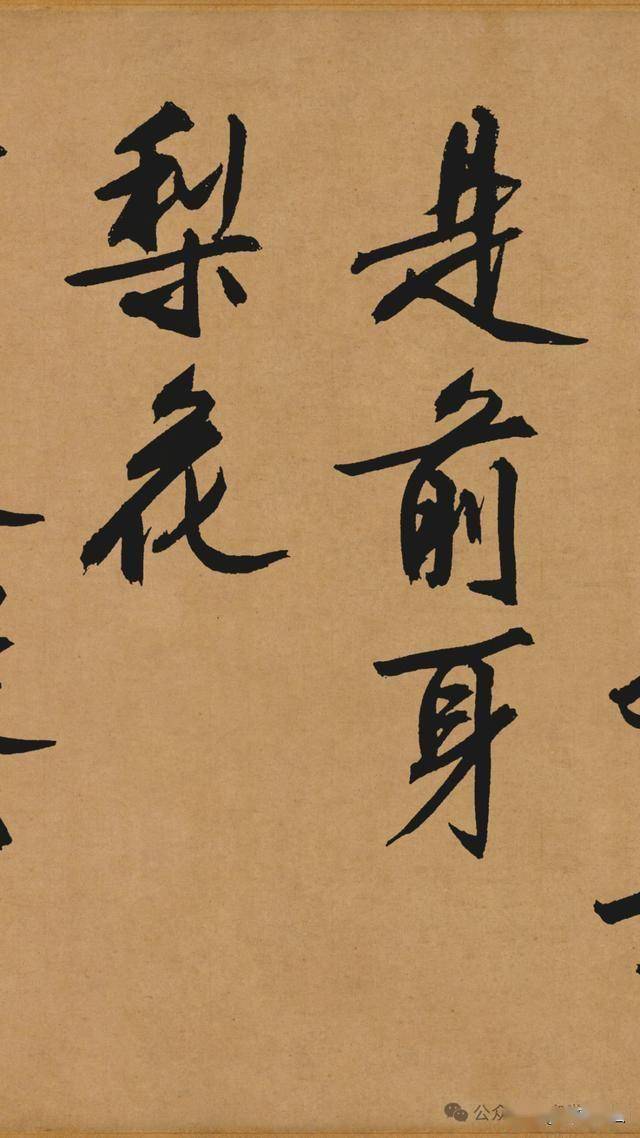 是前身
梨花
公众